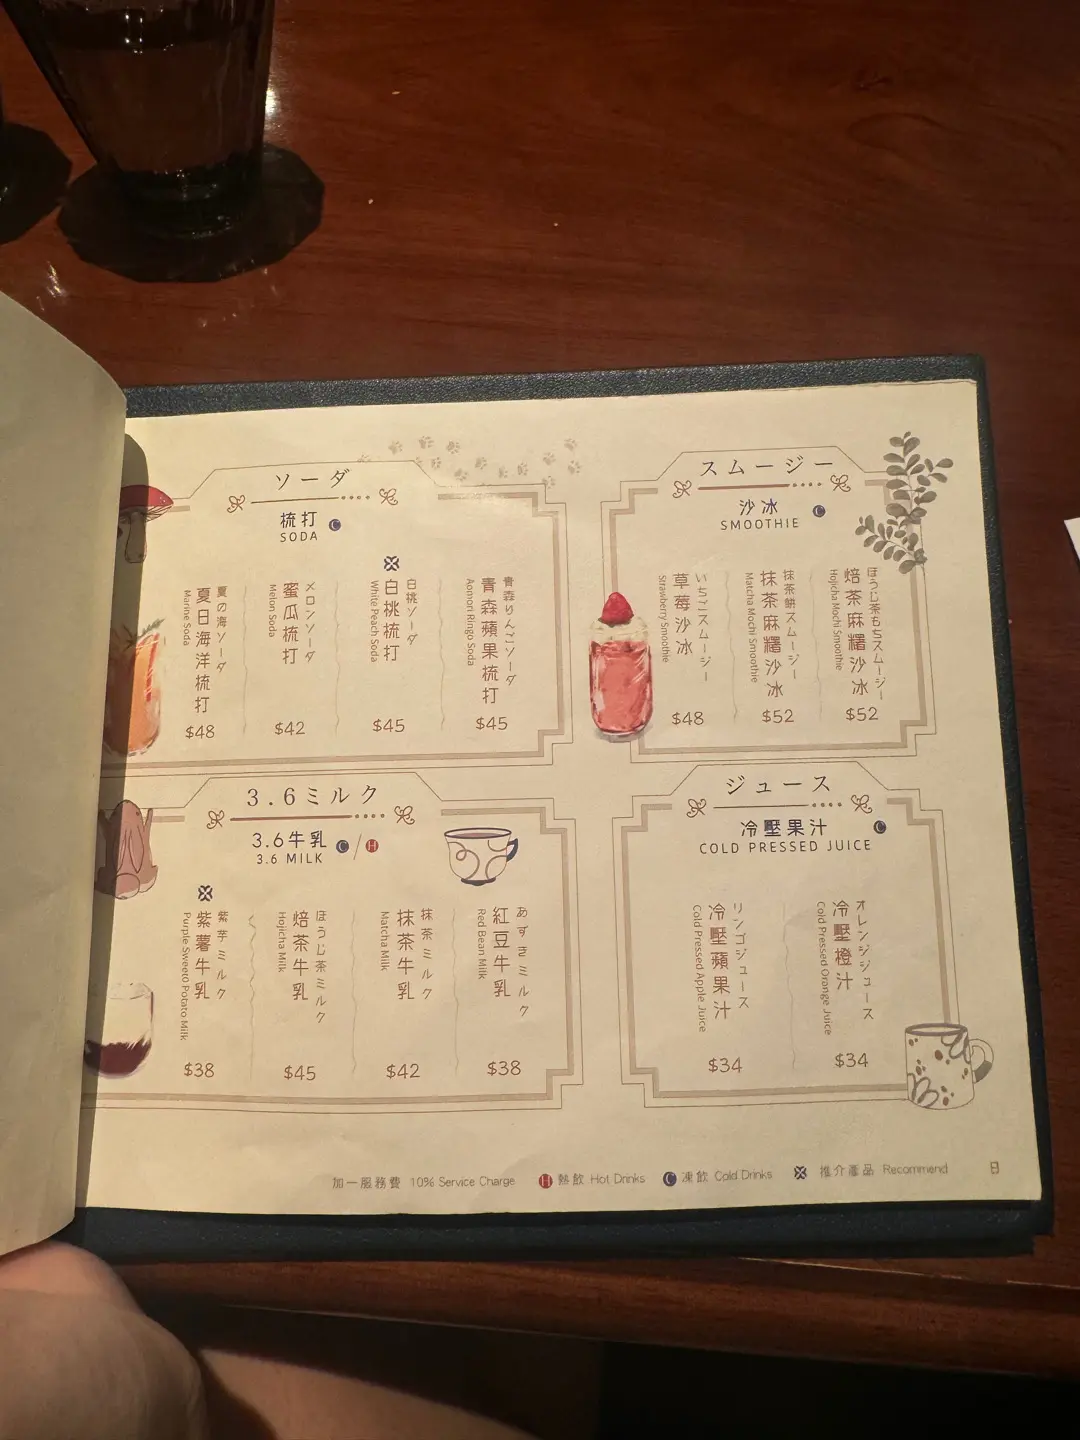 ソーダ
梳打
SODA
夏の海ソーダ
夏日海洋梳打
Marine Soda
$48
メロンソーダ
蜜瓜梳打
Melon Soda
$42
白桃ソーダ
白桃梳打
White Peach Soda
$45
青森りんごソーダ
青森蘋果梳打
Aomori Ringo Soda
$45
スムージー
沙冰
SMOOTHIE
いちごスムージー
草莓沙冰
Strawberry Smoothie
$48
抹茶餅スムージー
抹茶麻糬沙冰
Matcha Mochi Smoothie
$52
ほうじ茶もちスムージー
焙茶麻糬沙冰
Hojicha Mochi Smoothie
$52
3.6ミルク
3.6牛乳 C/H
3.6 MILK
紫芋ミルク
紫薯牛乳
Purple Sweeto Potato Milk
$38
ほうじ茶ミルク
焙茶牛乳
Hojicha Milk
$45
抹茶ミルク
抹茶牛乳
Matcha Milk
$42
あずきミルク
紅豆牛乳
Red Bean Milk
$38
ジュース
冷壓果汁
COLD PRESSED JUICE
リンゴジュース
冷壓蘋果汁
Cold Pressed Apple Juice
$34
オレンジジュース
冷壓橙汁
Cold Pressed Orange Juice
$34
加一服務費 10% Service Charge H 熱飲 Hot Drinks C 凍飲 Cold Drinks 推介產品 Recommend